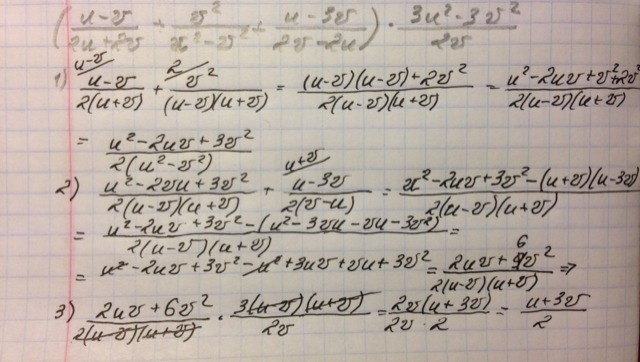 ( (u-v)/(2u+2v) + v²/(u²-v²) + (u-3v)/(2v-2u) ) · (3u²-3v²)/(2v)
1) (u-v)/(2(u+v)) ^(u-v) + v²/((u-v)(u+v)) ^2 = ((u-v)(u-v)+2v²)/(2(u-v)(u+v)) = (u²-2uv+v²+2v²)/(2(u-v)(u+v))
= (u²-2uv+3v²)/(2(u²-v²))
2) (u²-2vu+3v²)/(2(u-v)(u+v)) + (u-3v)/(2(v-u)) ^(u+v) = (u²-2uv+3v²-(u+v)(u-3v))/(2(u-v)(u+v))
= (u²-2uv+3v²-(u²-3vu-vu-3v²))/(2(u-v)(u+v)) =
= u²-2uv+3v²-u²+3uv+vu+3v² = (2uv+6v²)/(2(u-v)(u+v)) ⇒
3) (2uv+6v²)/(2(u-v)(u+v)) · (3(u-v)(u+v))/(2v) = (2v(u+3v))/(2v·2) = (u+3v)/2